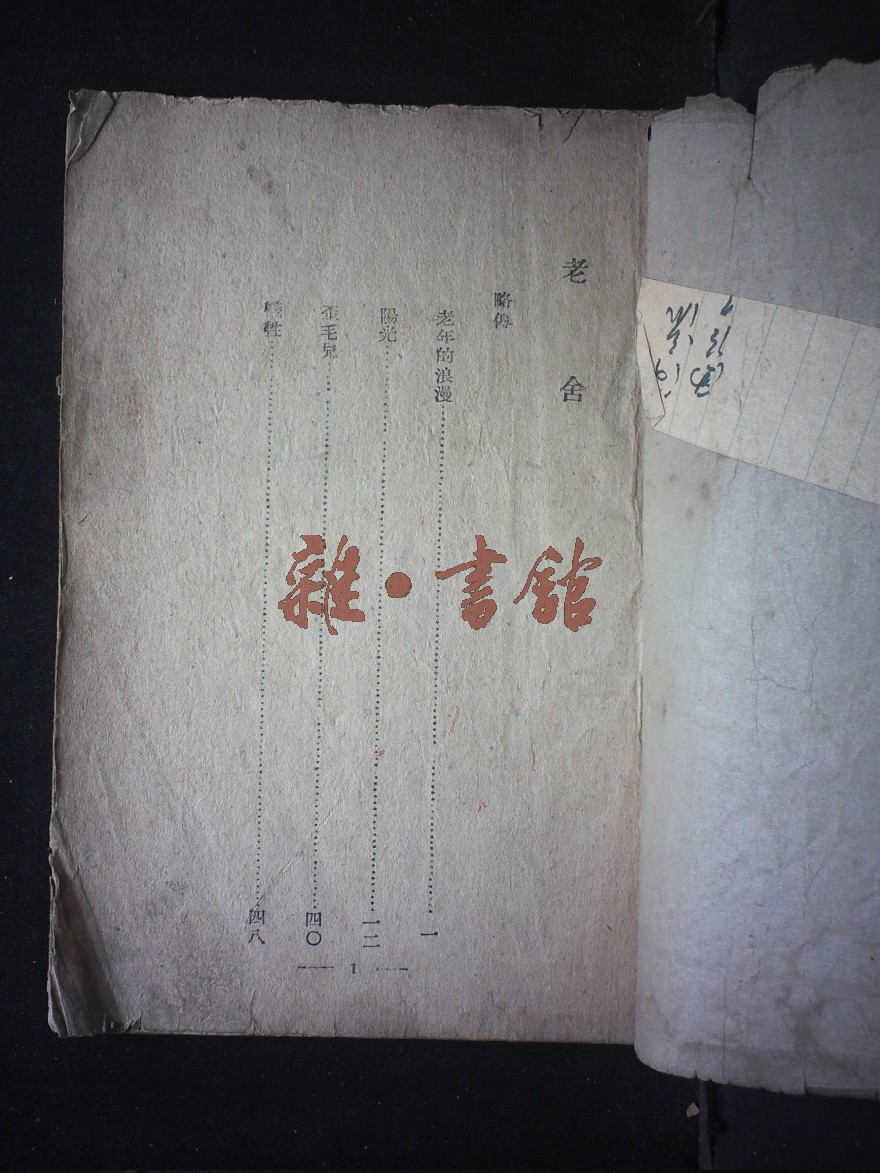 老舍
略傳
老年的浪漫……一
陽光……一二
歪毛兒……四〇
犧牲……四八
— 1 —
雜·書館